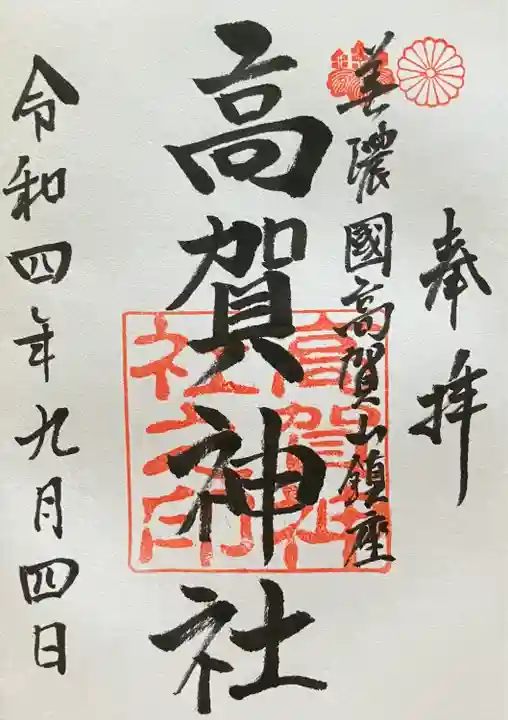 奉拝
美濃國高賀山鎮座
高賀神社
高賀神社之印
令和四年九月四日